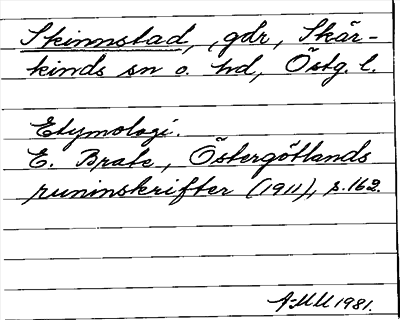 Skinnstad, gdr, Skär-
kinds sn o. hd, Östg. l.
Etymologi.
E. Brate, Östergötlands
runinskrifter (1911), s. 162.
AMM 1981.